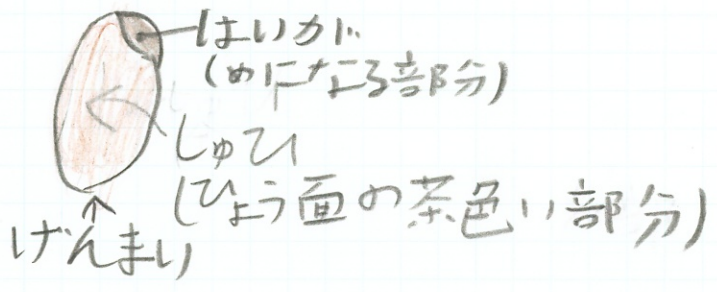 はいが
(めになる部分)
しゅひ
(ひょう面の茶色い部分)
げんまい